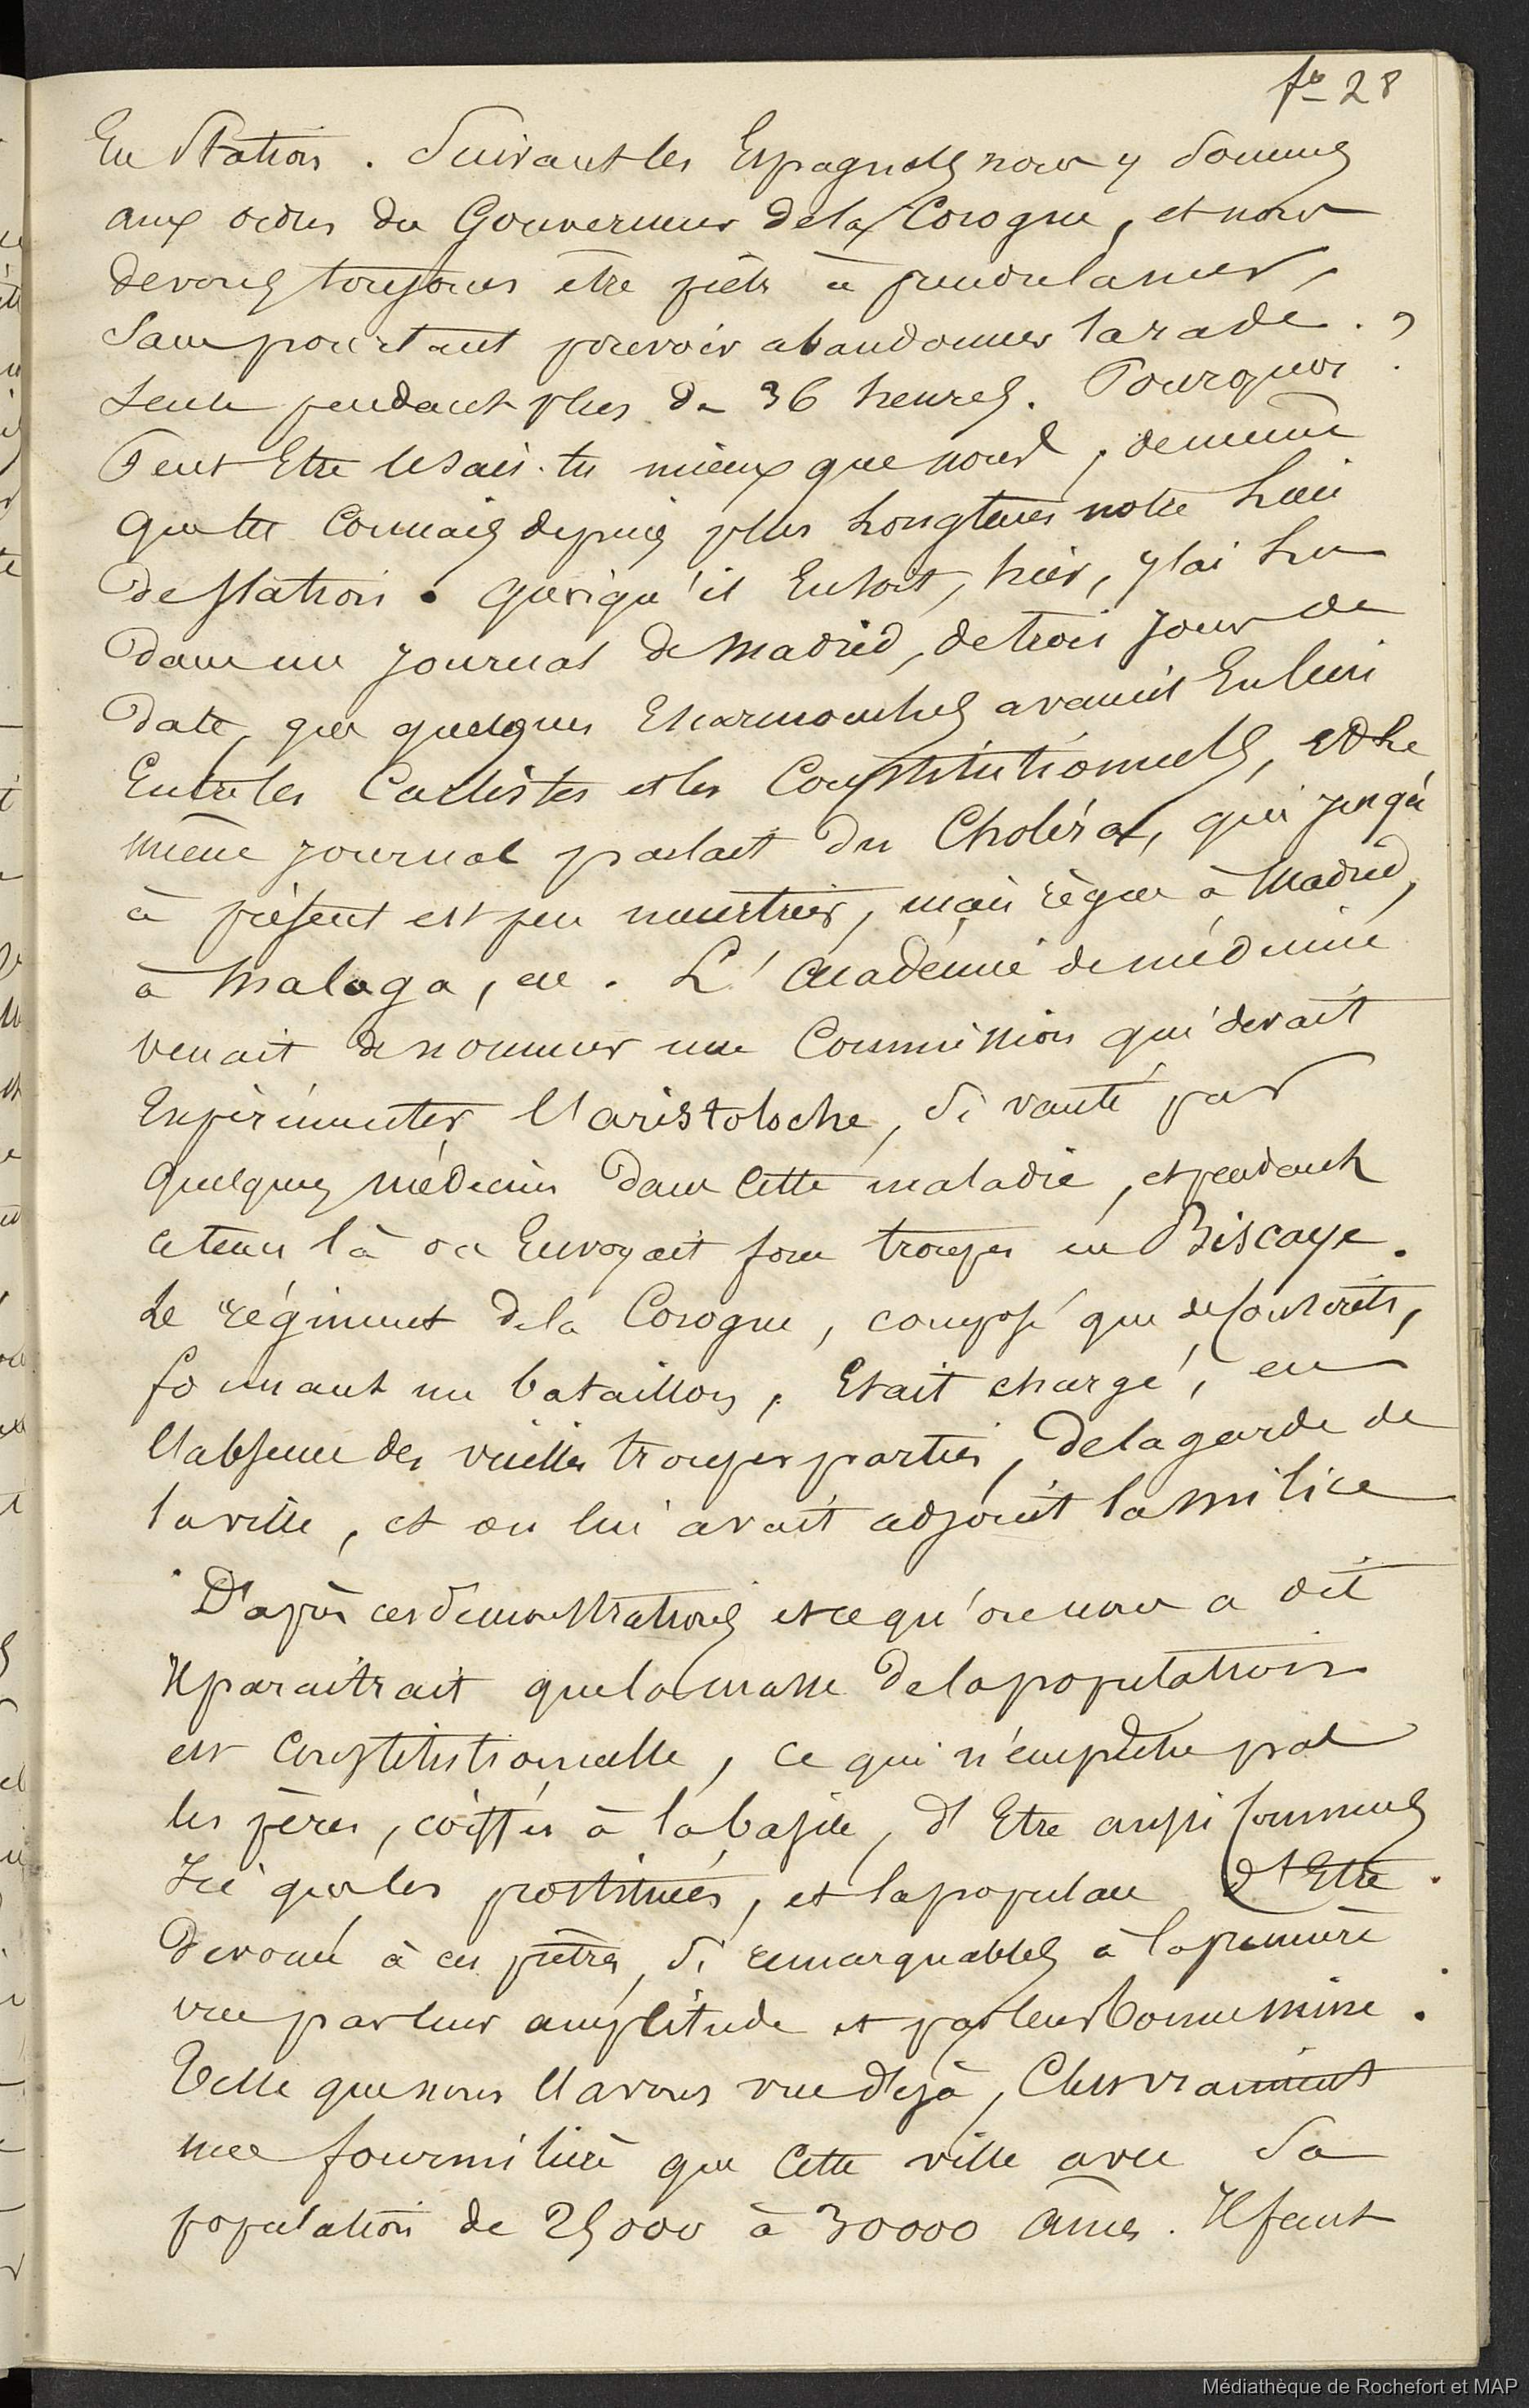 fo 28
En Station. Suivant les Espagnols nous y sommes
aux ordres du Gouverneur de la Corogne, et nous
devons toujours être prêts à prendre la mer,
Sans pourtant pouvoir abandonner la rade.
Seule pendant plus de 36 heures. Pourquoi ?
Peut Etre le sais-tu mieux que nous, de même
que tu Connais depuis plus Longtems notre Lieu
de Station. Quoiqu'il En soit, hier, j'ai Lu
dans un journal de Madrid, de trois jours de
date, que quelques Escarmouches avaient Eu lieu
Entre les Carlistes et les Constitutionnels, et Le
même journal parlait du Choléra, qui jusqu'
à présent est peu meurtrier, mais règne à Madrid,
à Malaga, etc. L'Académie de médecine
venait de nommer une Commission qui devait
Expérimenter l'aristoloche, si vanté par
quelques médecins dans Cette maladie, et pendant
ce tems là on Envoyait force troupes en Biscaye.
Le régiment de la Corogne, composé que de Conscrits,
formant un bataillon, Etait chargé, en
l'absence des vieilles troupes parties, de la garde de
la ville, et on lui avait adjoint la milice
D'après ces démonstrations et ce qu'on nous a dit
Il paraitrait que la masse de la population
est Constitutionnelle, ce qui n'empêche pas
les pères, coiffés à la basile, d'Etre aussi Communs
Ici que les prostituées, et la populace d'Etre
dévouée à ces prêtres, si remarquables à la première
vue par leur amplitude et par leur bonne mine.
Telle que nous l'avons vue déjà, C'est vraiment
une fourmilière que Cette ville avec sa
population de 25000 à 30000 âmes. Il faut
Médiathèque de Rochefort et MAP